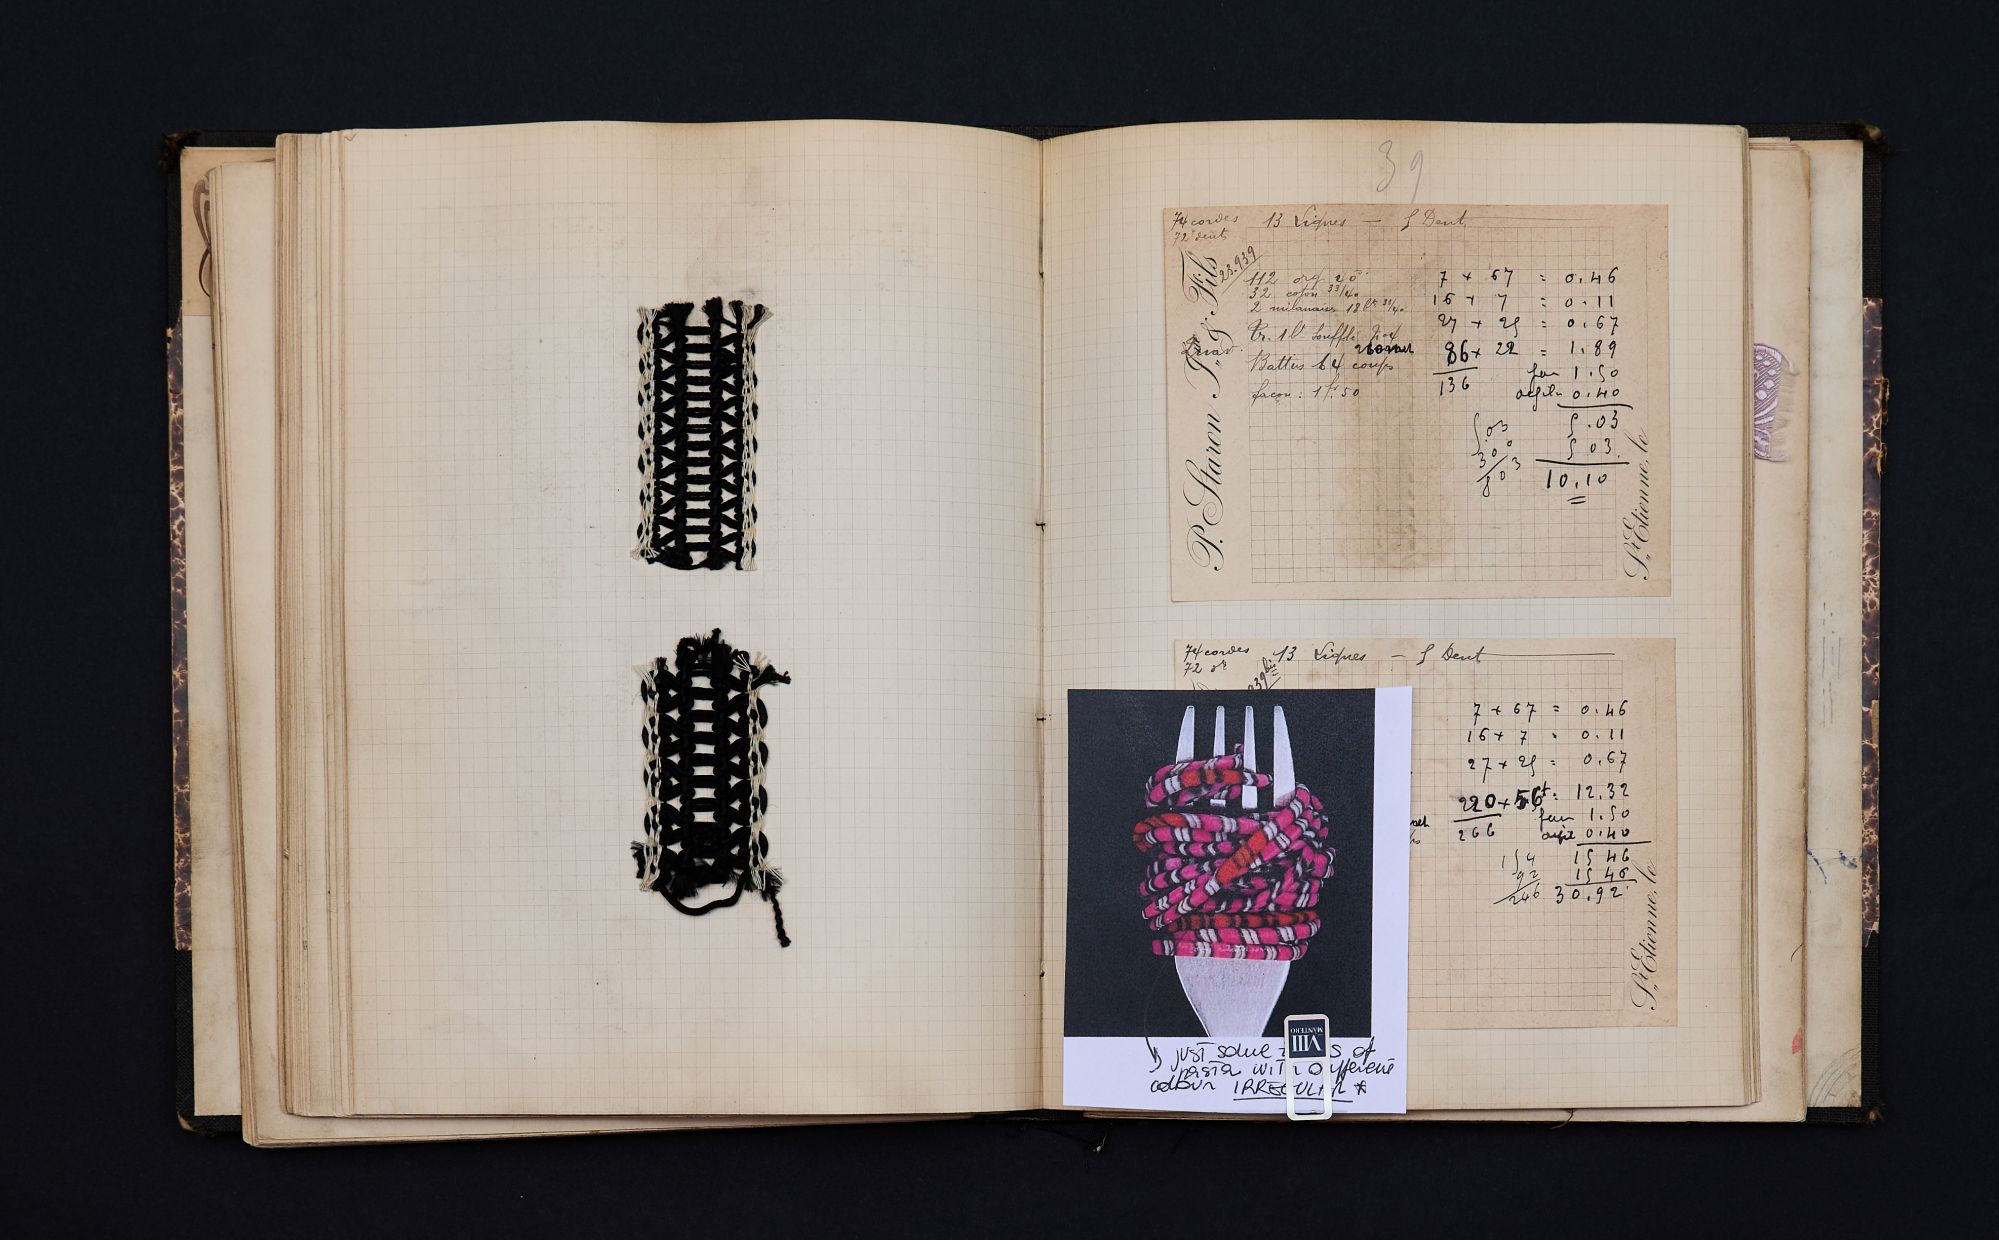 39
74 cordes
72 dents
13 Lignes — 5 Dent
23.939
P. Staron Pre & Fils
112 org 20
32 coton 33/40
2 milanaises 18 bts 33/40
Tr. 1 bt Soufflé
Battus 64 coups
façon : 1f.50
7 + 67 = 0.46
16 + 7 = 0.11
27 + 25 = 0.67
86 + 22 = 1.89
136
1.50
0.40
5.03
5 03
10.10
5.03
3 0 0
8 0 3
St Etienne, le
74 cordes
72
13 Lignes — 5 Dent
939 bis
7 + 67 = 0.46
16 + 7 = 0.11
27 + 25 = 0.67
220 + 56 = 12.32
266
1.50
0.40
15 46
15 46
30.92
154
92
246
St Etienne, le
VIII
MANTERO
just some of
pasta with different
colour IRREGULAR *